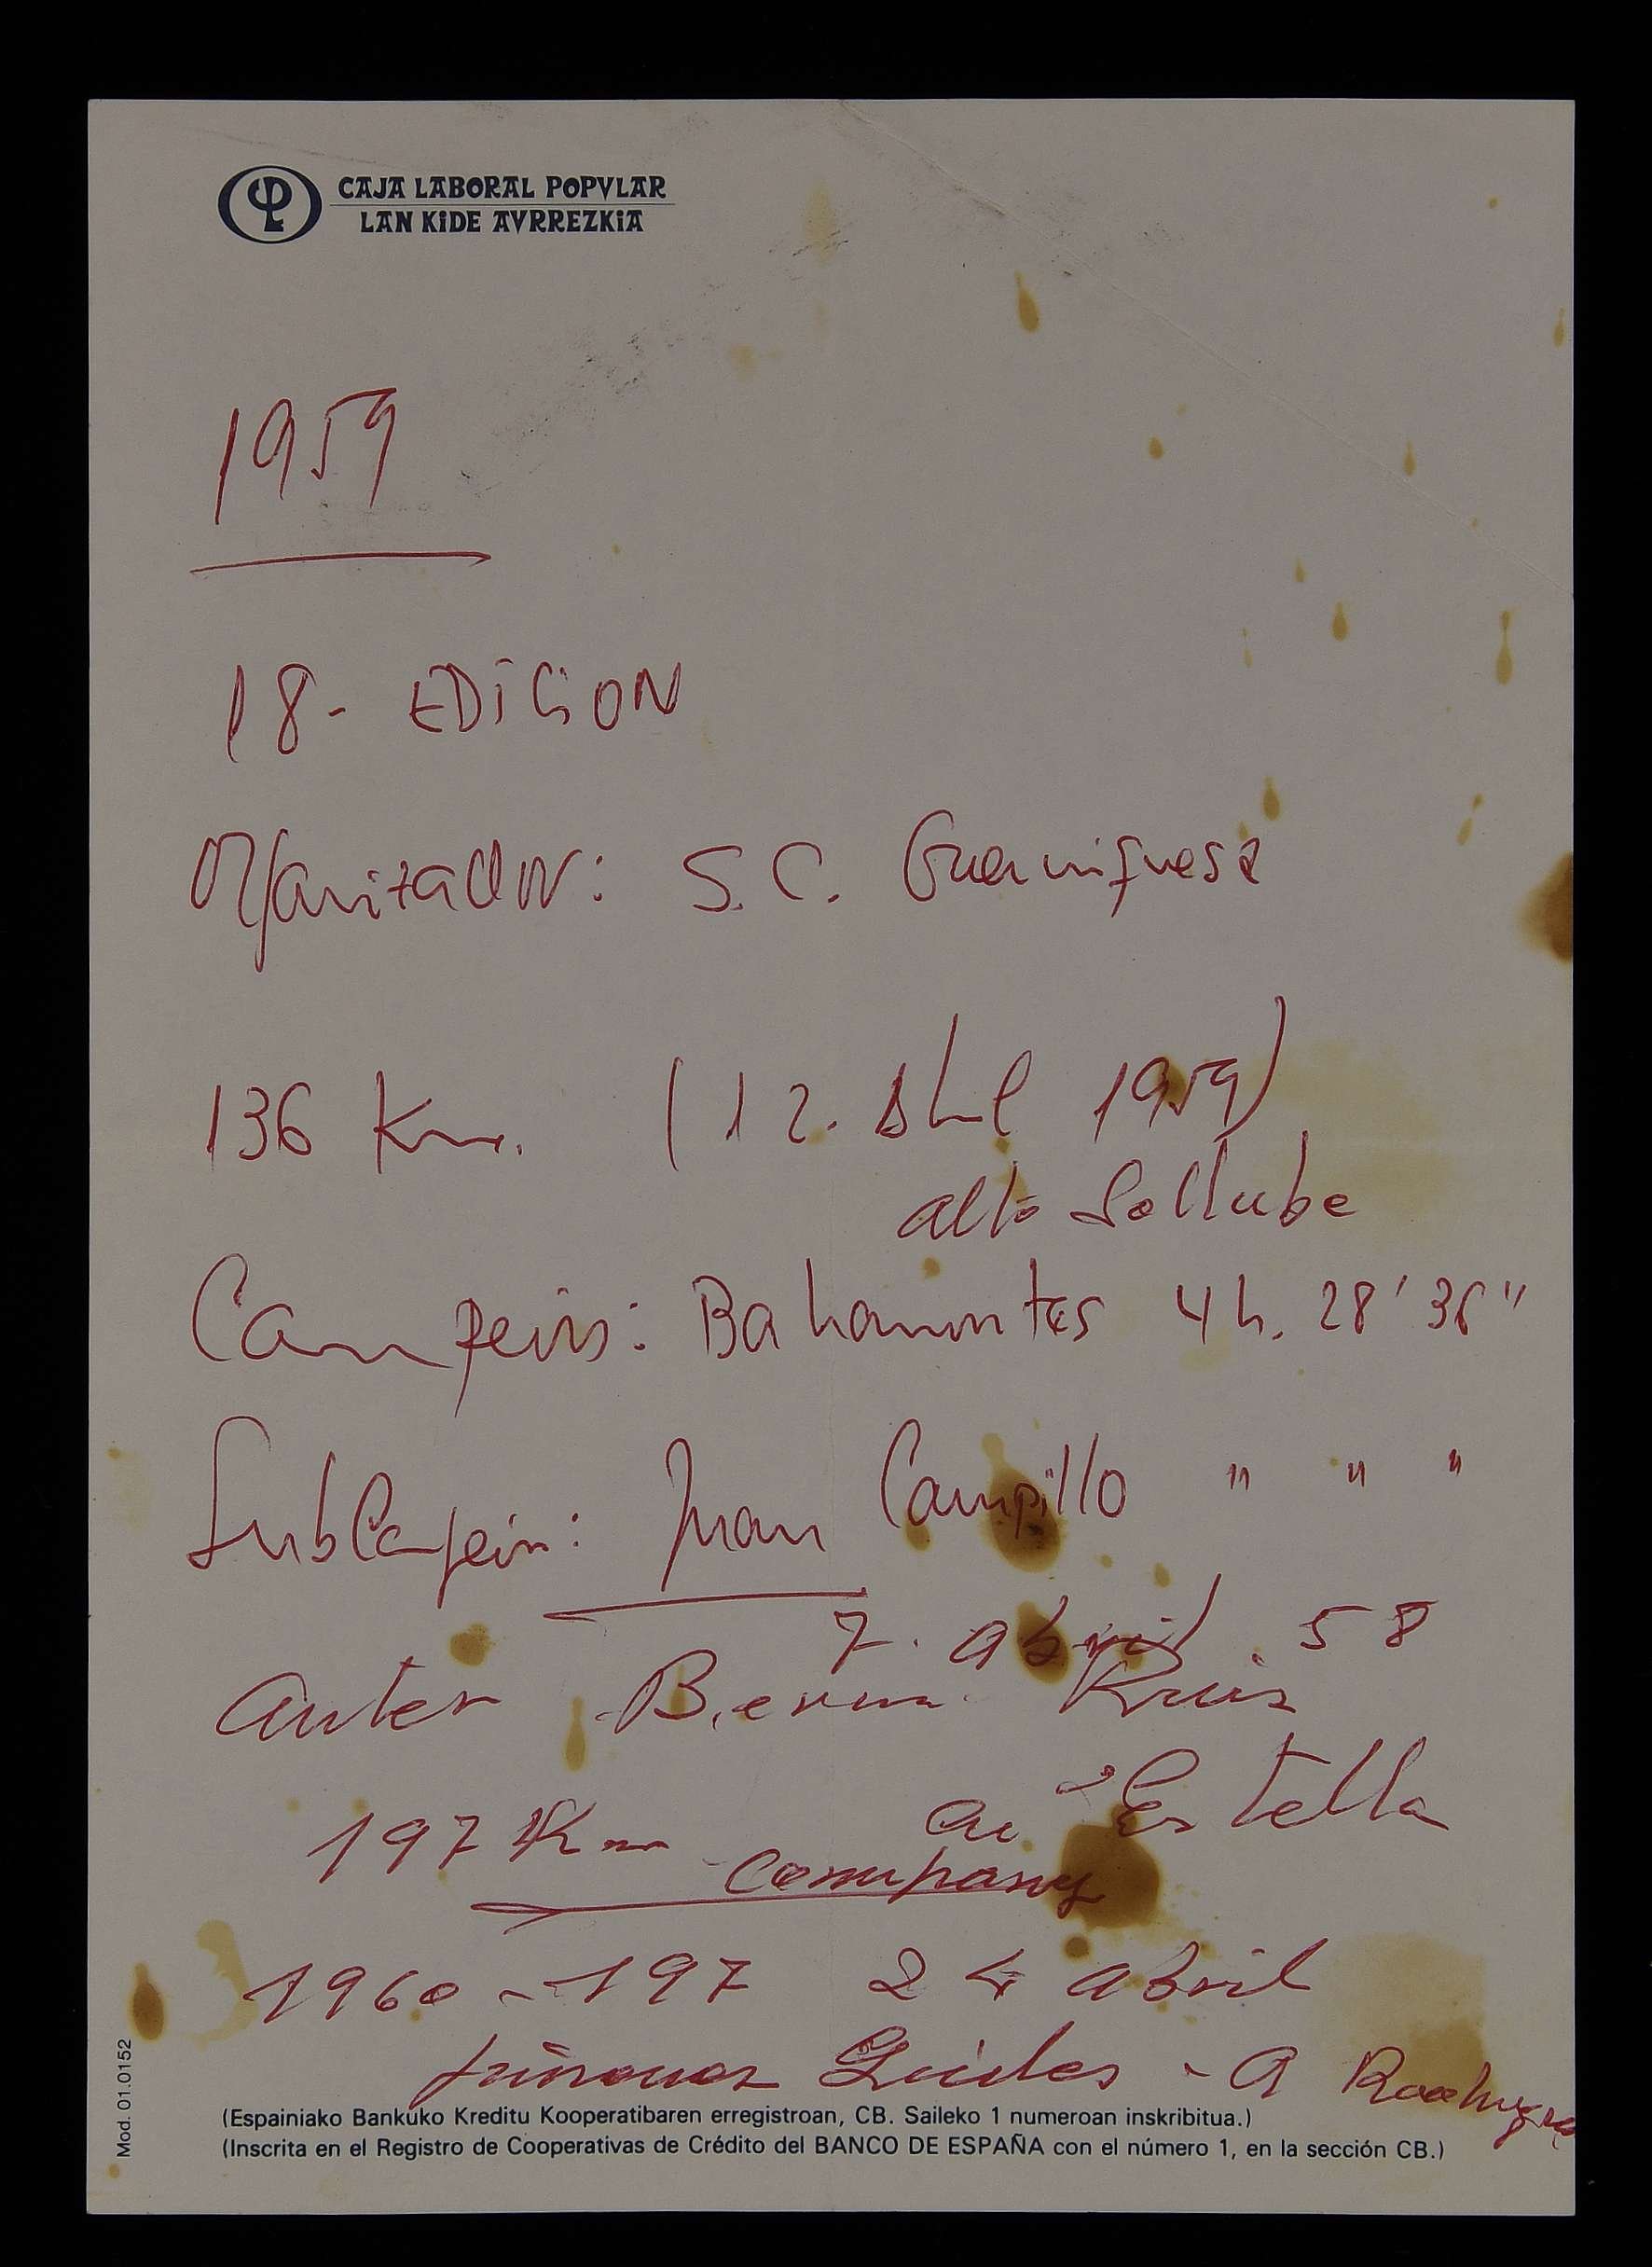 CAJA LABORAL POPVLAR
LAN KIDE AVRREZKIA
1959
18- EDICION
Organizador: S.C. Guerniquesa
136 Km. (12. Abril 1959)
alto Sollube
Campeón: Bahamontes 4 h. 28' 36"
SubCampeón: Juan Campillo " " "
7. abril 58
antes Ruiz
Estella
197 Km
Company
1960 - 197 24 abril
- a
(Espainiako Bankuko Kreditu Kooperatibaren erregistroan, CB. Saileko 1 numeroan inskribitua.)
(Inscrita en el Registro de Cooperativas de Crédito del BANCO DE ESPAÑA con el número 1, en la sección CB.)
Mod. 01.0152